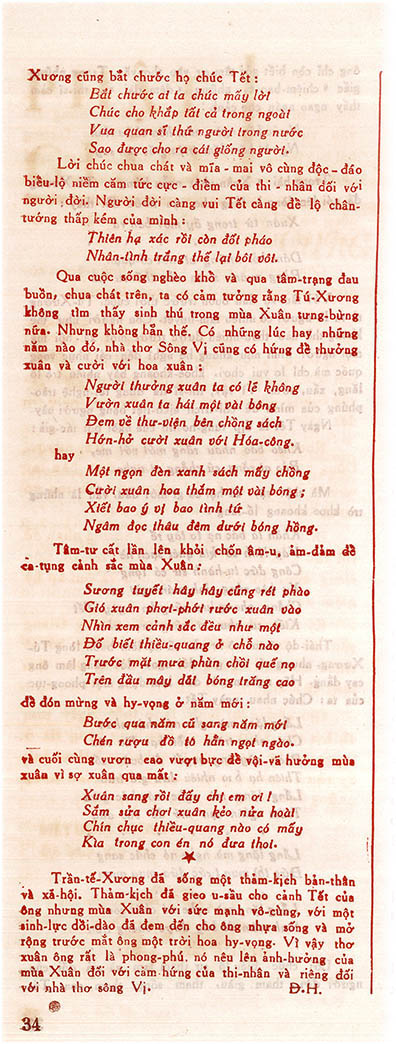 Xương cũng bắt chước họ chúc Tết :
Bắt chước ai ta chúc mấy lời
Chúc cho khắp tất cả trong ngoài
Vua quan sĩ thứ người trong nước
Sao được cho ra cái giống người.
Lời chúc chua chát và mĩa - mai vô cùng độc - đáo
biểu-lộ niềm căm tức cực - điểm của thi - nhân dối với
người đời. Người đời càng vui Tết càng để lộ chân-
tướng thấp kém của mình :
Thiên hạ xác rồi còn đốt pháo
Nhân-tình trắng thế lại bôi vôi.
Qua cuộc sống nghèo khổ và qua tâm-trạng đau
buồn, chua chát trên, ta có cảm tưởng rằng Tú-Xương
không tìm thấy sinh thú trong mùa Xuân tưng-bừng
nữa. Nhưng không hẳn thế. Có những lúc hay những
năm nào đó, nhà thơ Sông Vị cũng có hứng để thưởng
xuân và cười với hoa xuân :
Người thưởng xuân ta có lẽ không
Vườn xuân ta hái một vài bông
Đem về thư-viện bên chồng sách
Hớn-hở cười xuân với Hóa-công.
hay
Một ngọn đèn xanh sách mấy chồng
Cười xuân hoa thắm một vài bông ;
Xiết bao ý vị bao tình tứ
Ngâm đọc thâu đêm dưới bóng hồng.
Tâm-tư cất lần lên khỏi chốn âm-u, ảm-đảm để
ca-tụng cảnh sắc mùa Xuân :
Sương tuyết hây hây cũng rét phào
Gió xuân phơi-phới rước xuân vào
Nhìn xem cảnh sắc đều như một
Đố biết thiều-quang ở chỗ nào
Trước mặt mưa phùn chồi quế nọ
Trên đầu mây dắt bóng trăng cao
để đón mừng và hy-vọng ở năm mới :
Bước qua năm cũ sang năm mới
Chén rượu đồ tô hẳn ngọt ngào.
và cuối cùng vươn cao vượt bực để vội-vã hưởng mùa
xuân vì sợ xuân qua mất :
Xuân sang rồi đấy chị em ơi !
Sắm sửa chơi xuân kẻo nửa hoài
Chín chục thiều-quang nào có mấy
Kìa trong con én nó đưa thoi.
Trần-tế-Xương đã sống một thảm-kịch bản-thân
và xã-hội. Thảm-kịch đã gieo u-sầu cho cảnh Tết của
ông nhưng mùa Xuân với sức mạnh vô-cùng, với một
sinh-lực dồi-dào đã đem đến cho ông nhựa sống và mở
rộng trước mắt ông một trời hoa hy-vọng. Vì vậy thơ
xuân ông rất là phong-phú, nó nêu lên ảnh-hưởng của
mùa Xuân đối với cảm hứng của thi-nhân và riêng đối
với nhà thơ sông Vị.
Đ.H.
34